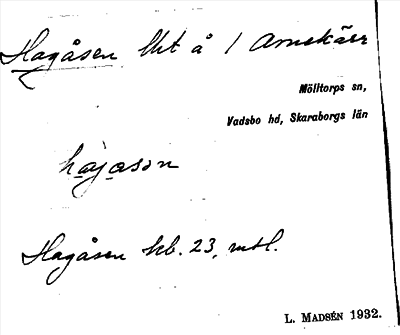 Hagåsen lht å 1 Arnekärr
Mölltorps sn,
Vadsbo hd, Skaraborgs län
hagason
Hagåsen kb. 23, mtl.
L. MADSÉN 1932.